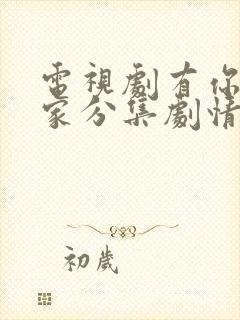 電視劇有你
家分集劇情
初歲